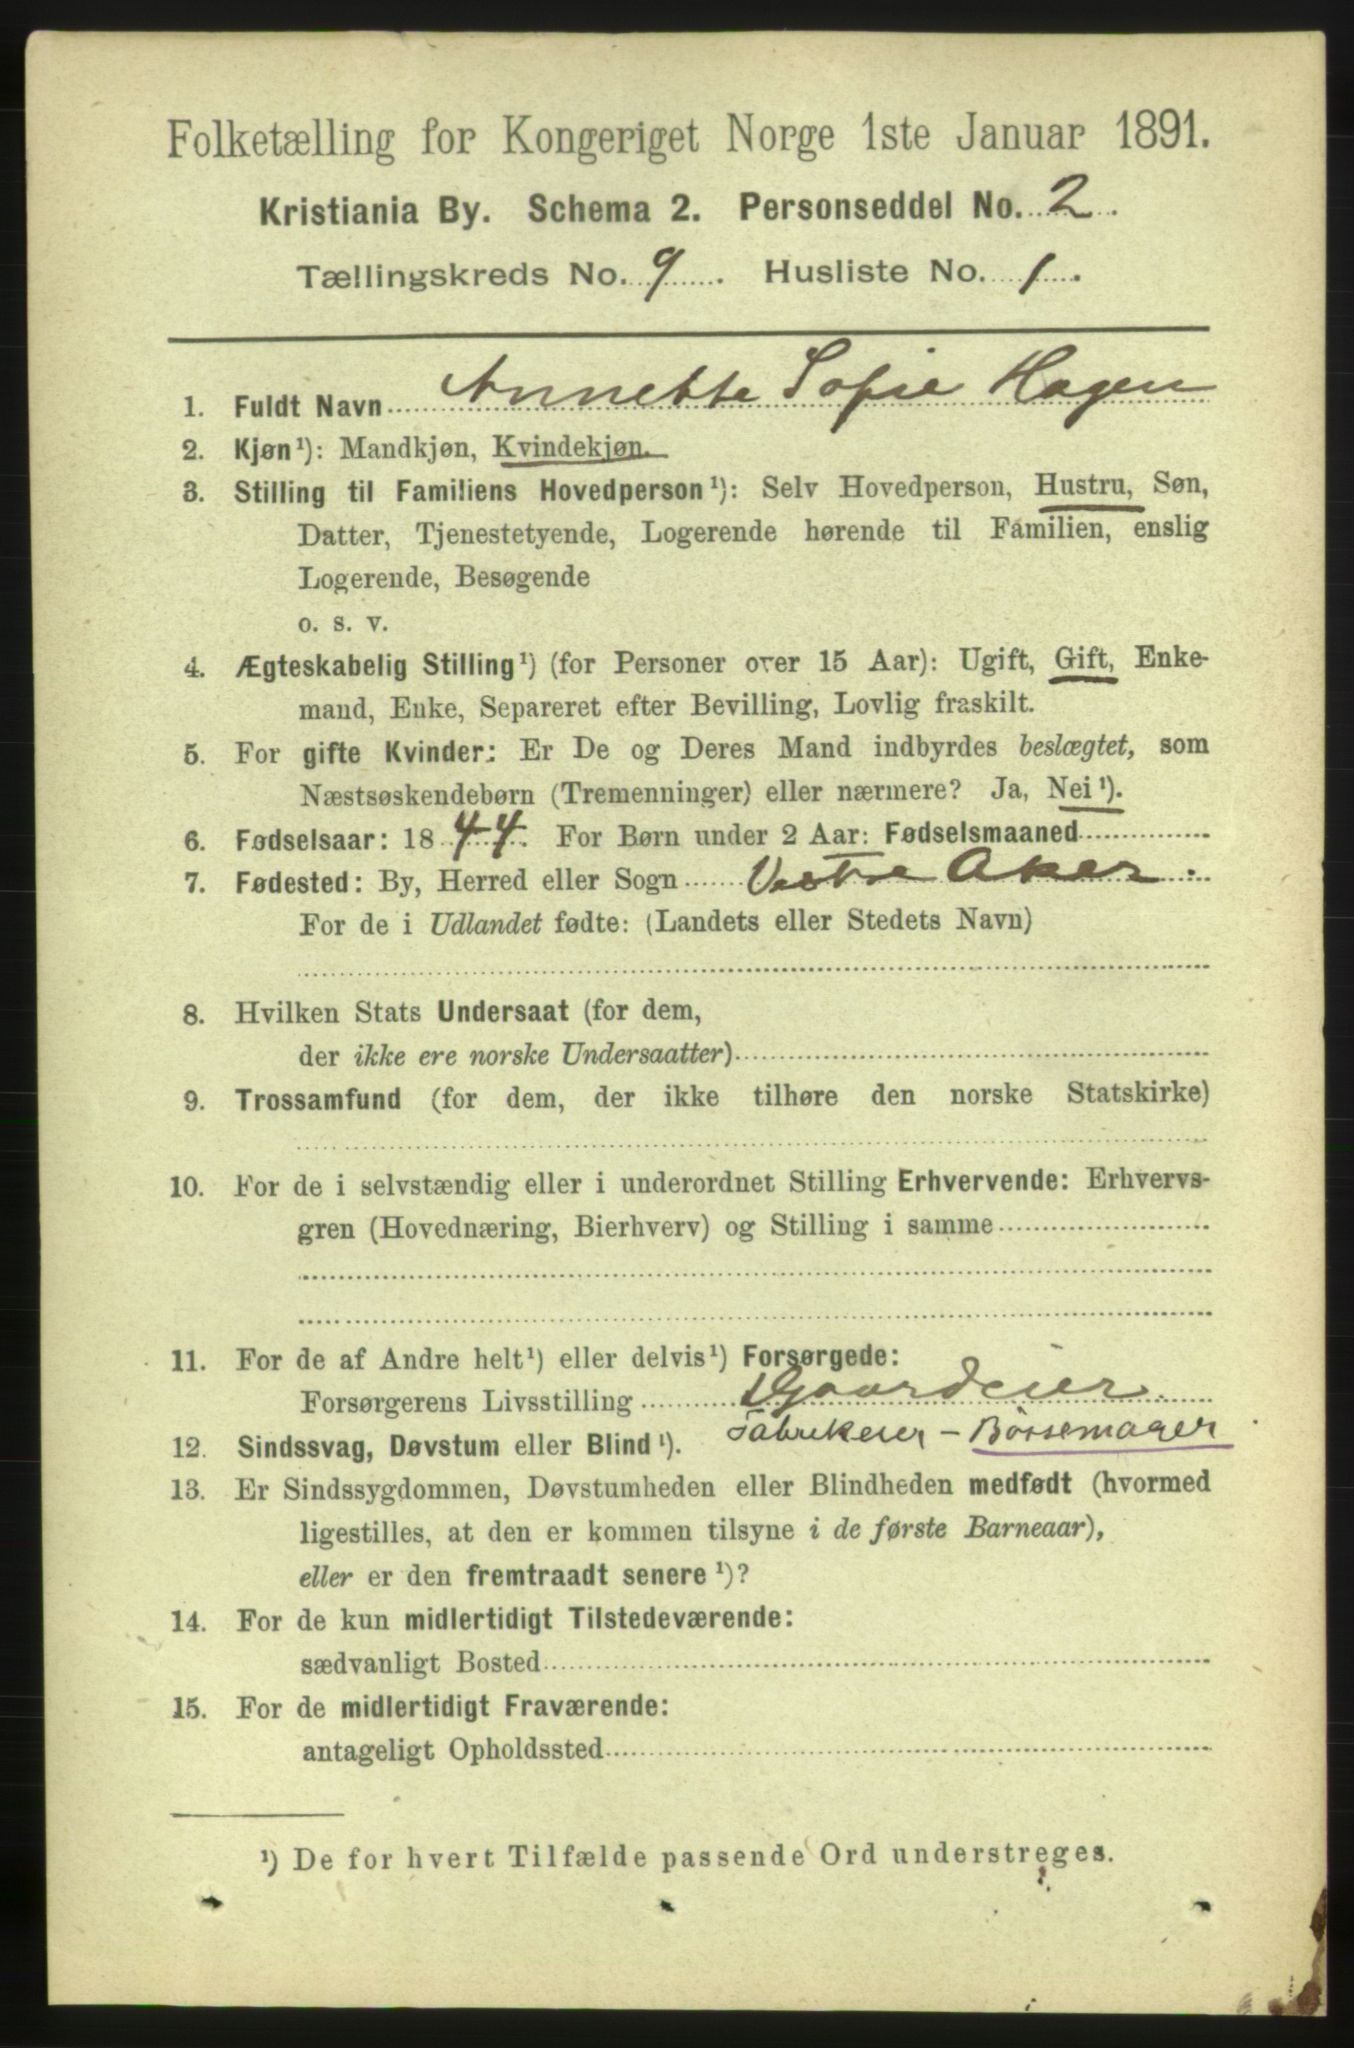 Folketælling for Kongeriget Norge 1ste Januar 1891.
Kristiania By. Schema 2. Personseddel No. 2.
Tællingskreds No. 9. Husliste No. 1.
1. Fuldt Navn Annette Sofie Hagen
2. Kjøn¹): Mandkjøn, Kvindekjøn.
3. Stilling til Familiens Hovedperson¹): Selv Hovedperson, Hustru, Søn,
Datter, Tjenestetyende, Logerende hørende til Familien, enslig
Logerende, Besøgende
o. s. v.
4. Ægteskabelig Stilling¹) (for Personer over 15 Aar): Ugift, Gift, Enke-
mand, Enke, Separeret efter Bevilling, Lovlig fraskilt.
5. For gifte Kvinder: Er De og Deres Mand indbyrdes beslægtet, som
Næstsøskendebørn (Tremenninger) eller nærmere? Ja, Nei¹).
6. Fødselsaar: 1844. For Børn under 2 Aar: Fødselsmaaned
7. Fødested: By, Herred eller Sogn Vestre Aker.
For de i Udlandet fødte: (Landets eller Stedets Navn)
8. Hvilken Stats Undersaat (for dem,
der ikke ere norske Undersaatter)
9. Trossamfund (for dem, der ikke tilhøre den norske Statskirke)
10. For de i selvstændig eller i underordnet Stilling Erhvervende: Erhvervs-
gren (Hovednæring, Bierhverv) og Stilling i samme
11. For de af Andre helt¹) eller delvis¹) Forsørgede:
Forsørgerens Livsstilling Gaardeier.
Fabrikeier - Bössemager
12. Sindssvag, Døvstum eller Blind¹).
13. Er Sindssygdommen, Døvstumheden eller Blindheden medfødt (hvormed
ligestilles, at den er kommen tilsyne i de første Barneaar),
eller er den fremtraadt senere¹)?
14. For de kun midlertidigt Tilstedeværende:
sædvanligt Bosted
15. For de midlertidigt Fraværende:
antageligt Opholdssted
¹) De for hvert Tilfælde passende Ord understreges.